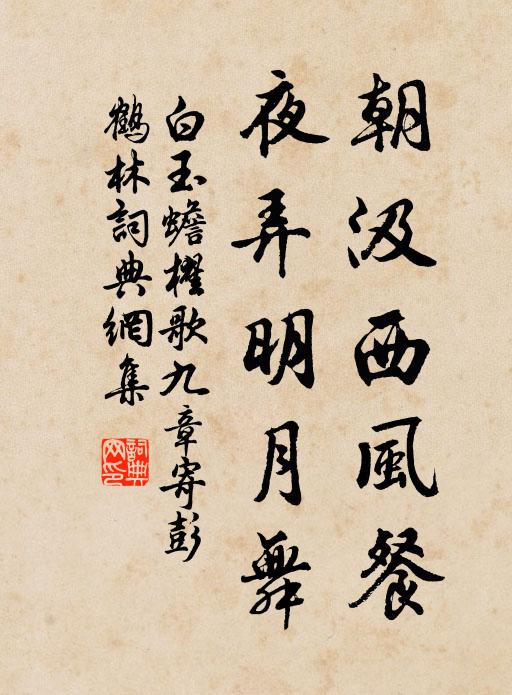 朝汲西風餐
夜弄明月舞
白玉蟾櫂歌九章寄彭
鶴林詞典網集
詞典網印